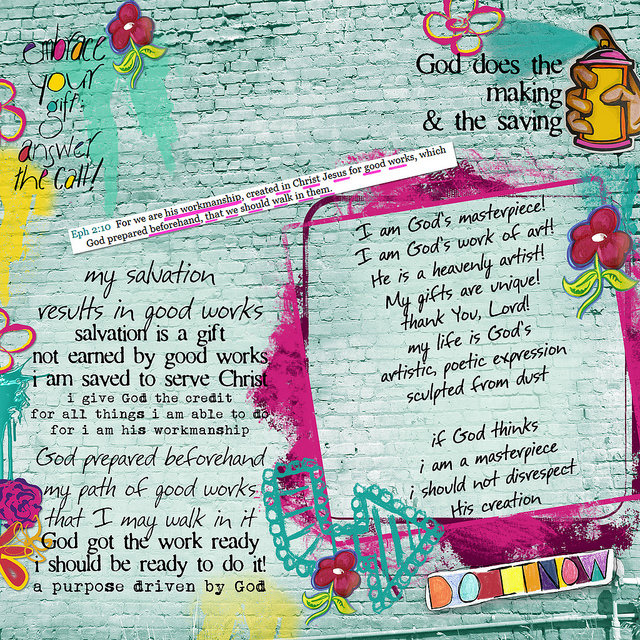 embrace
your
gift;
answer
the call!
God does the
making
& the saving
Eph 2:10 For we are his workmanship, created in Christ Jesus for good works, which
God prepared beforehand, that we should walk in them.
my salvation
results in good works
salvation is a gift
not earned by good works
i am saved to serve Christ
i give God the credit
for all things i am able to do
for i am his workmanship
God prepared beforehand
my path of good works
that I may walk in it
God got the work ready
i should be ready to do it!
a purpose driven by God
I am God's masterpiece!
I am God's work of art!
He is a heavenly artist!
My gifts are unique!
thank You, Lord!
my life is God's
artistic, poetic expression
sculpted from dust
if God thinks
i am a masterpiece
i should not disrespect
His creation
DO IT NOW